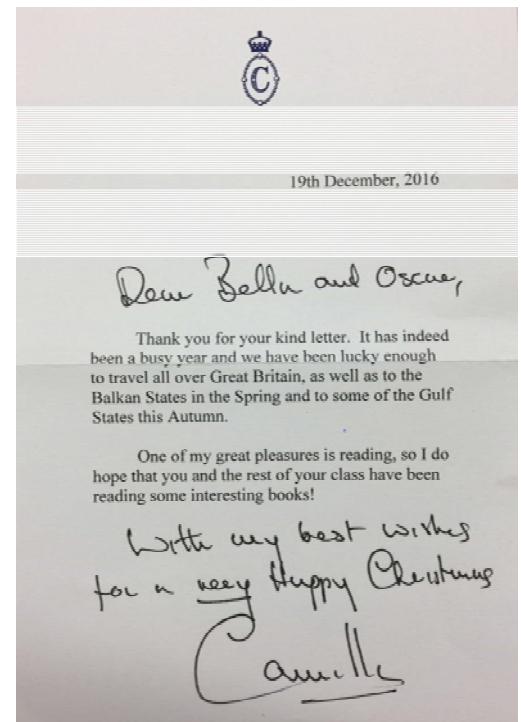 C
19th December, 2016
Dear Bella and Oscar,
Thank you for your kind letter. It has indeed
been a busy year and we have been lucky enough
to travel all over Great Britain, as well as to the
Balkan States in the Spring and to some of the Gulf
States this Autumn.
One of my great pleasures is reading, so I do
hope that you and the rest of your class have been
reading some interesting books!
With my best wishes
for a very Happy Christmas
Camilla